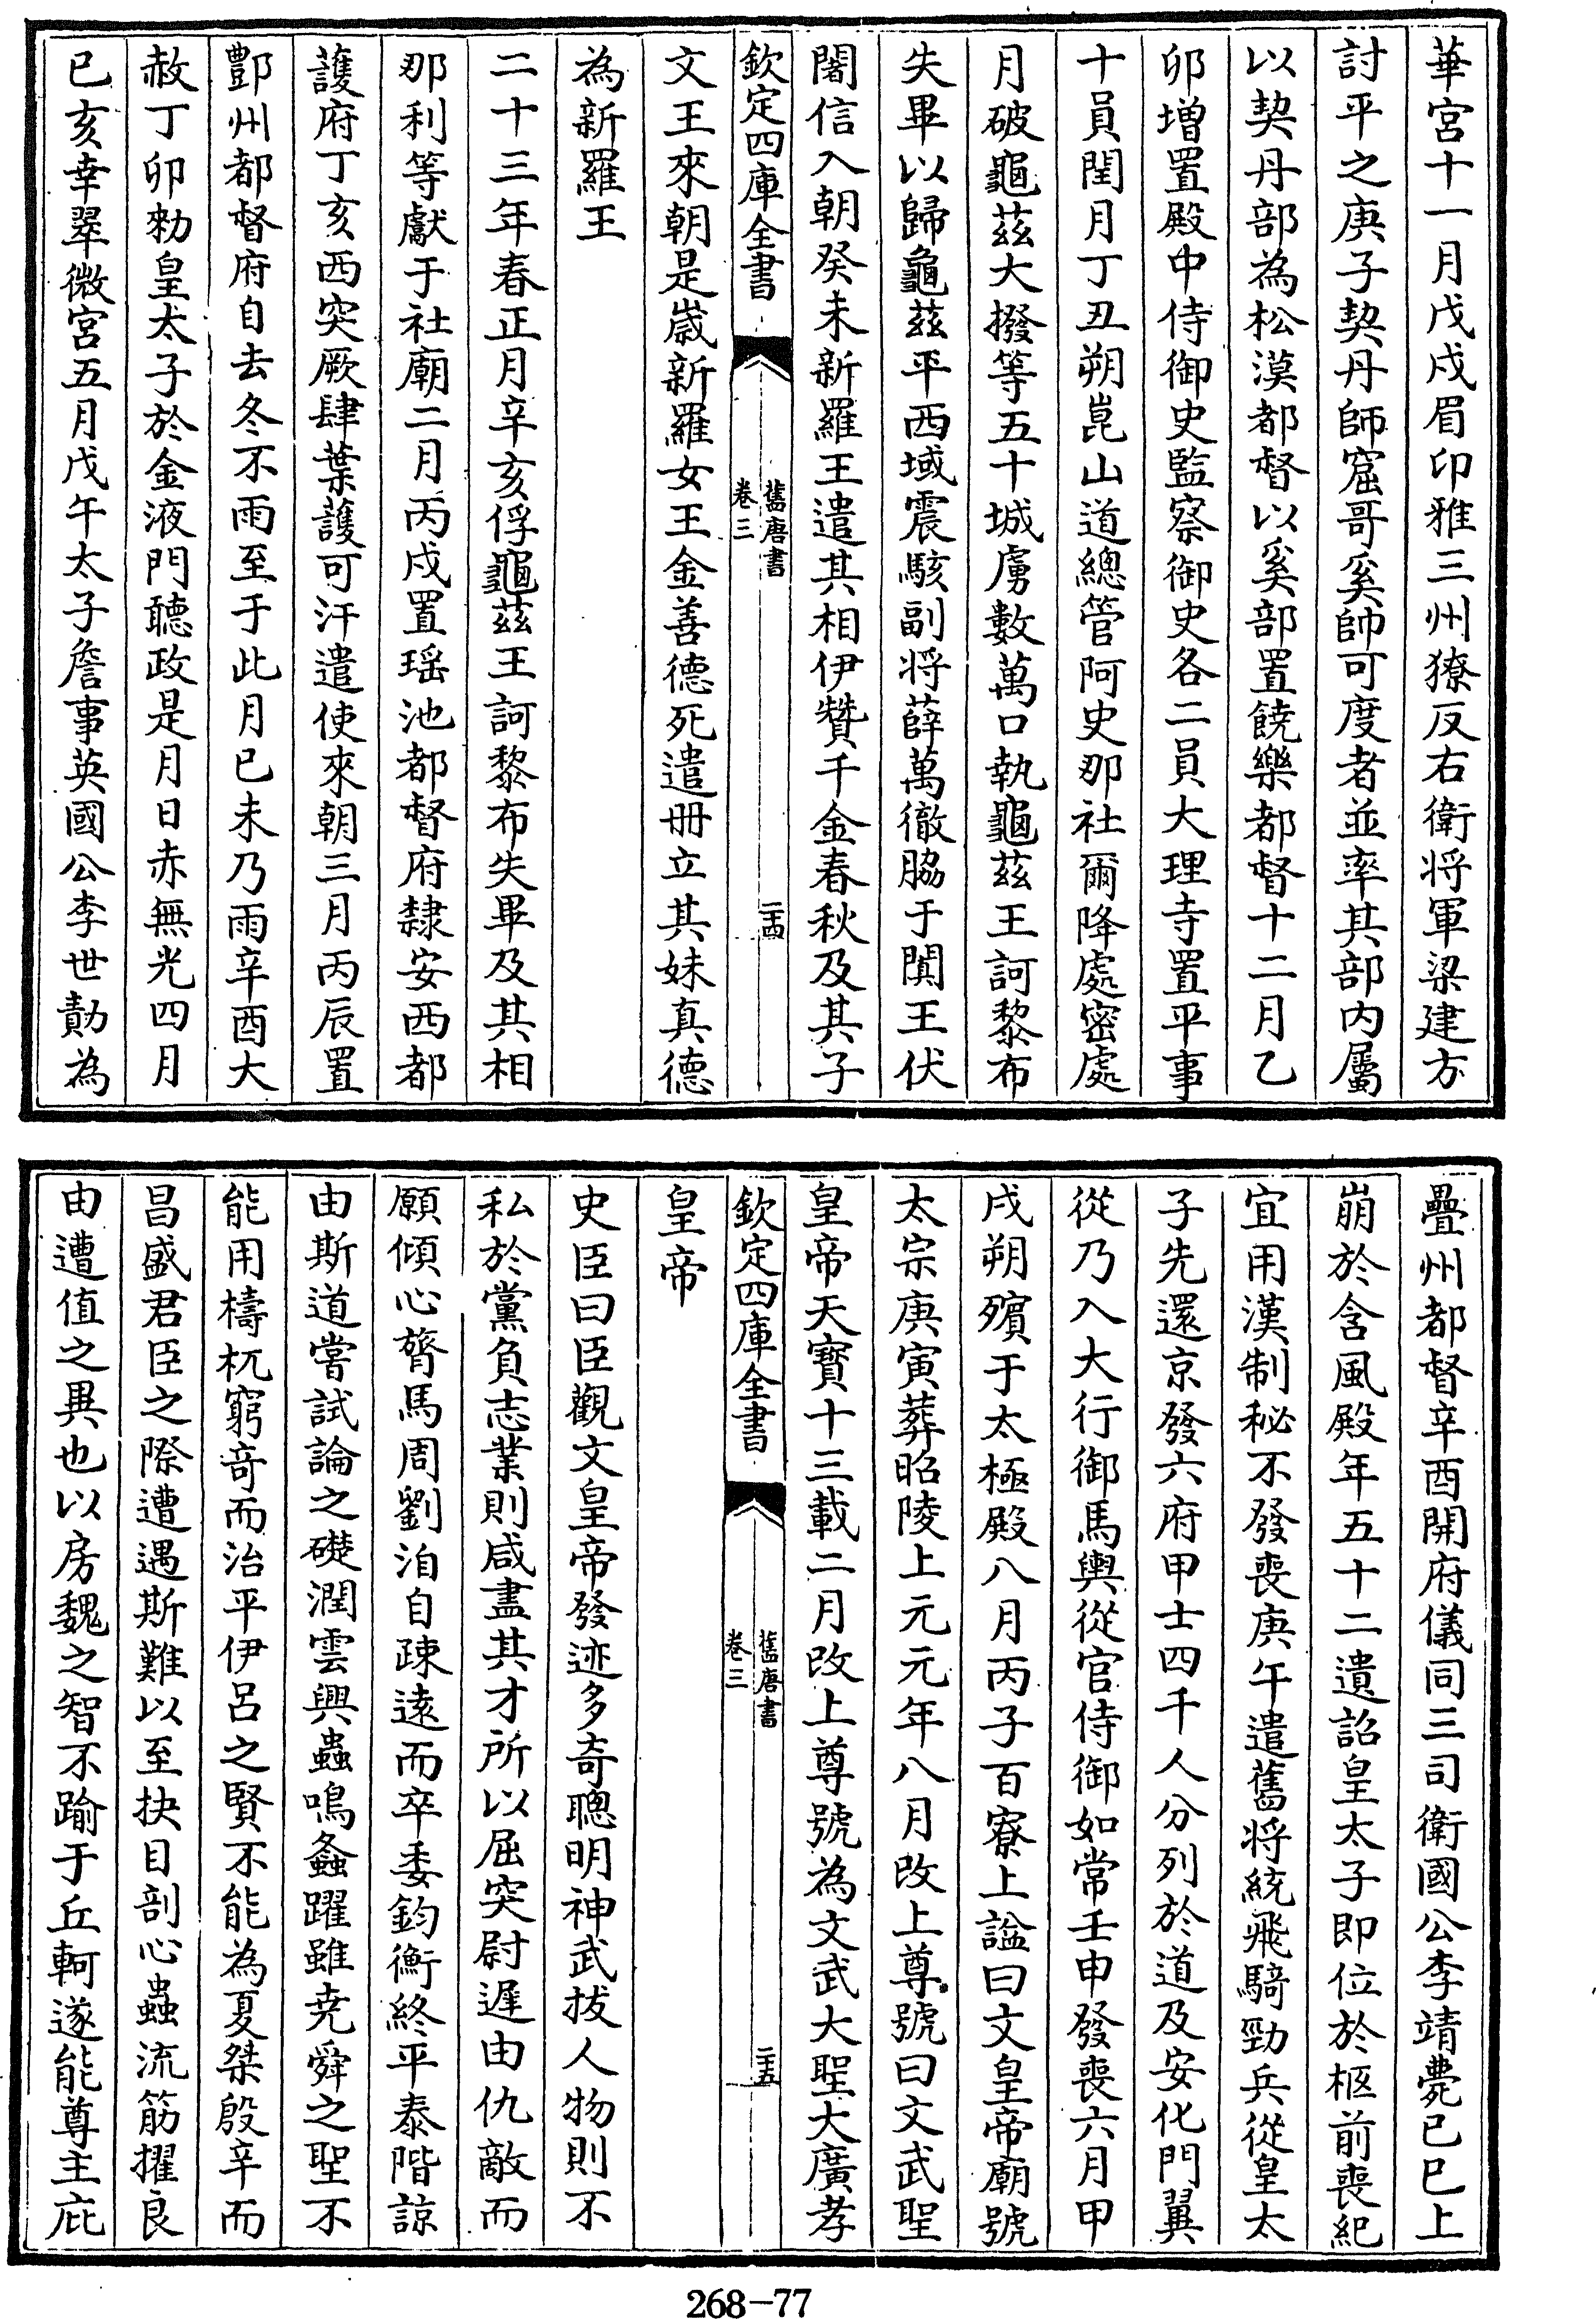 華宮十一月戊戌眉卭雅三州獠反右衛将軍梁建方
討平之庚子契丹師窟哥奚帥可度者並率其部内屬
以契丹部為松漠都督以奚部置饒樂都督十二月乙
卯增置殿中侍御史監察御史各二員大理寺置平事
十員閏月丁丑朔崑山道總管阿史那社爾降處密處
月破龜茲大撥等五十城虜數萬口執龜茲王訶黎布
失畢以歸龜茲平西域震駭副将薛萬徹脇于闐王伏
闍信入朝癸未新羅王遣其相伊贊千金春秋及其子
欽定四庫全書
舊唐書
卷三
二十四
文王來朝是歲新羅女王金善德死遣冊立其妹真德
為新羅王
二十三年春正月辛亥俘龜茲王訶黎布失畢及其相
那利等獻于社廟二月丙戌置瑶池都督府隸安西都
護府丁亥西突厥肆葉護可汗遣使來朝三月丙辰置
酆州都督府自去冬不雨至于此月已未乃雨辛酉大
赦丁卯勑皇太子於金液門聽政是月日赤無光四月
已亥幸翠微宮五月戊午太子詹事英國公李世勣為
疊州都督辛酉開府儀同三司衛國公李靖薨已巳上
崩於含風殿年五十二遺詔皇太子即位於柩前喪紀
宜用漢制秘不發喪庚午遣舊将統飛騎勁兵從皇太
子先還京發六府甲士四千人分列於道及安化門翼
從乃入大行御馬輿從官侍御如常壬申發喪六月甲
戌朔殯于太極殿八月丙子百寮上諡曰文皇帝廟號
太宗庚寅葬昭陵上元元年八月改上尊號曰文武聖
皇帝天寳十三載二月改上尊號為文武大聖大廣孝
欽定四庫全書
舊唐書
卷三
二十五
皇帝
史臣曰臣觀文皇帝發迹多奇聰明神武拔人物則不
私於黨負志業則咸盡其才所以屈突尉遲由仇敵而
願傾心膂馬周劉洎自疎遠而卒委鈞衡終平泰階諒
由斯道嘗試論之礎潤雲興蟲鳴螽躍雖尭舜之聖不
能用檮杌窮竒而治平伊呂之賢不能為夏桀殷辛而
昌盛君臣之際遭遇斯難以至抉目剖心蟲流筋擢良
由遭值之異也以房魏之智不踰于丘軻遂能尊主庇
268-77